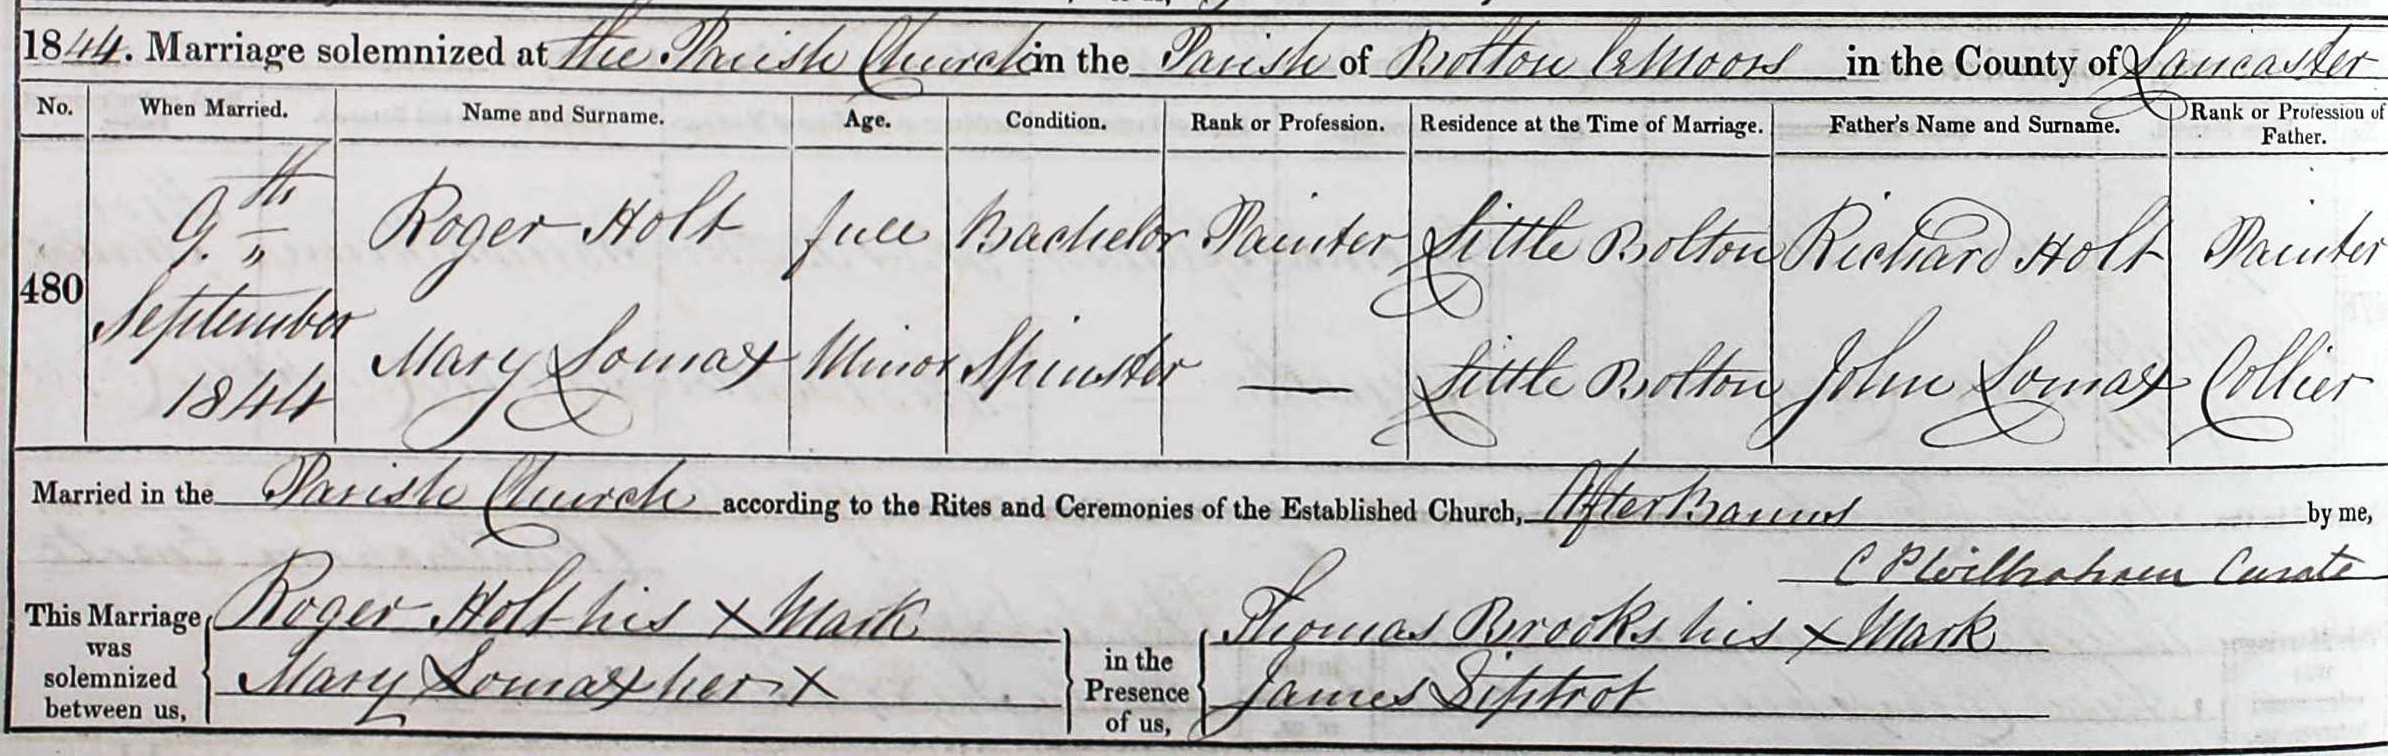 1844. Marriage solemnized at the Parish Church in the Parish of Bolton le Moors in the County of Lancaster
No. When Married. Name and Surname. Age. Condition. Rank or Profession. Residence at the Time of Marriage. Father's Name and Surname. Rank or Profession of Father.
480 9th September 1844
Roger Holt full Bachelor Painter Little Bolton Richard Holt Painter
Mary Lomax Minor Spinster — Little Bolton John Lomax Collier
Married in the Parish Church according to the Rites and Ceremonies of the Established Church, After Banns by me,
C P Wilbraham Curate
This Marriage was solemnized between us, Roger Holt his x Mark
Mary Lomax her x
in the Presence of us, Thomas Brooks his x Mark
James Siptrot